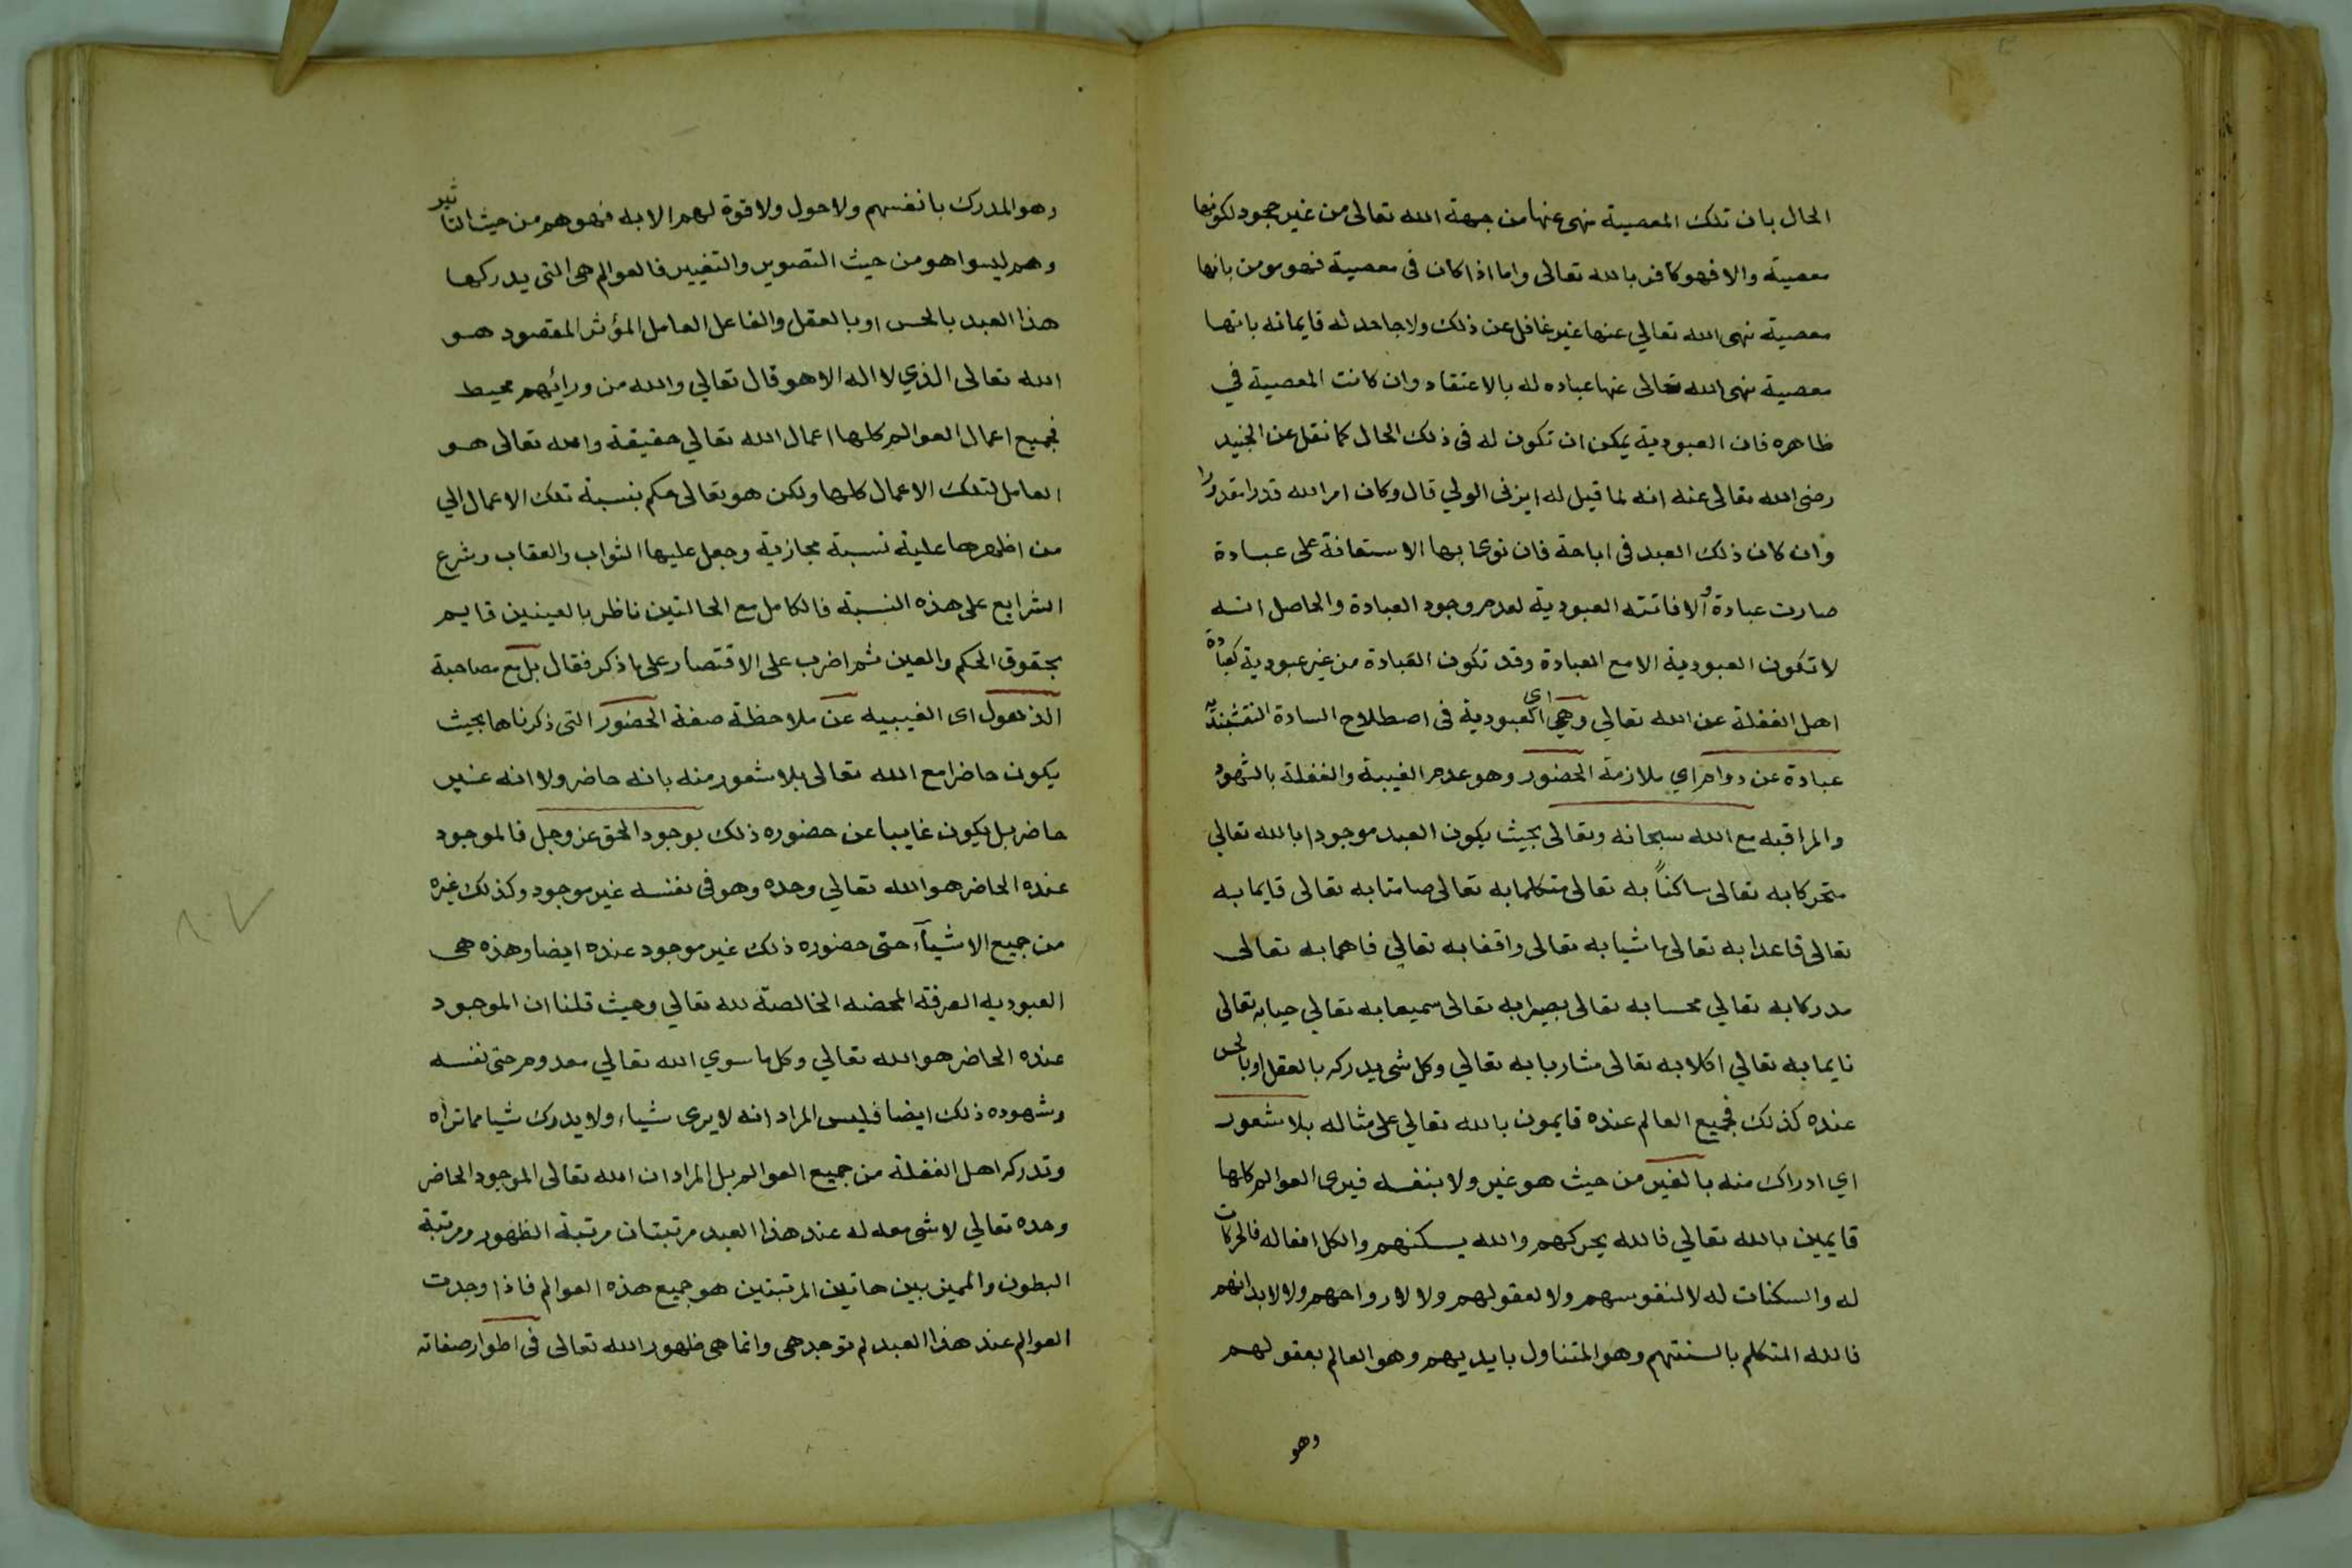 الحال بان تلك المعصية نهى عنها من جهة الله تعالى من غير جحود لكونها
معصية والا فهو كافر بالله تعالى واما اذا كان في معصية فهو مومن بانها
معصية نهى الله تعالي عنها غير غافل عن ذلك ولا جاحد له فايمانه بانها
معصية نهى الله تعالى عنها عباده له بالاعتقاد وان كانت المعصية في
ظاهره فان العبودية يمكن ان تكون له في ذلك الحال كما نقل عن الجنيد
رضى الله تعالى عنه انه لما قيل له ايزنى الولي قال وكان امر الله قدرا مقدورا
وان كان ذلك العبد في اباحة فان نوى بها الاستعانة على عبادة
صارت عبادة والا فاتته العبودية لعدم وجود العبادة والحاصل انه
لا تكون العبودية الا مع العبادة وقد تكون العبادة من غير عبودية كعبادة
اهل الغفلة عن الله تعالي وهي اي العبودية في اصطلاح السادة النقشبندية
عبادة عن دوام اي ملازمة الحضور وهو عدم الغيبة والغفلة بالشهود
والمراقبه مع الله سبحانه وتعالى بحيث يكون العبد موجودا بالله تعالي
متحركا به تعالى ساكناً به تعالى متكلما به تعالى صامتا به تعالى قايما به
تعالى قاعدا به تعالى ماشيا به تعالى واقفا به تعالي فاهما به تعالى
مدركا به تعالي محسا به تعالى بصيرا به تعالى سميعا به تعالي حيا به تعالى
نايما به تعالي اكلا به تعالى شاربا به تعالي وكل شى يدركه بالعقل او بالحس
عنده كذلك فجميع العالم عنده قايمون بالله تعالي على مثاله بلا شعور
اي ادراك منه بالغير من حيث هو غير ولا بنفسه فيرى العوالم كلها
قايمين بالله تعالي فالله يحركهم والله يسكنهم والكل افعاله فالحركات
له والسكنات له لا لنفوسهم ولا لعقولهم ولا لارواحهم ولا لابدانهم
فالله المتكلم بالسنتهم وهو المتناول بايديهم وهو العالم بعقولهم
وهو
وهو المدرك بانفسهم ولا حول ولا قوة لهم الا به فهو هم من حيث التاثير
وهم ليسوا هو من حيث التصوير والتغيير فالعوالم هى التى يدركها
هذا العبد بالحس او بالعقل والفاعل العامل المؤثر المقصود هو
الله تعالى الذي لا اله الا هو قال تعالي والله من ورائهم محيط
فجميع اعمال العوالم كلها اعمال الله تعالي حقيقة والله تعالى هو
العامل لتلك الاعمال كلها ولكن هو تعالى حكم بنسبة تلك الاعمال الي
من اظهرها عليه نسبة مجازية وجعل عليها الثواب والعقاب وشرع
الشرايع على هذه النسبة فالكامل مع الحالتين ناظر بالعينين قايم
بحقوق الحكم والعين ثم اضرب على الاقتصار على ما ذكر فقال بل مع مصاحبة
الذهول اى الغيبيه عن ملاحظة صفة الحضور التى ذكرناها بحيث
يكون حاضرا مع الله تعالى بلا شعور منه بانه حاضر ولا انه غير
حاضر بل يكون غايبا عن حضوره ذلك بوجود الحق عز وجل فالموجود
عنده الحاضر هو الله تعالي وحده وهو فى نفسه غير موجود وكذلك غيره
من جميع الاشيآء حتى حضوره ذلك غير موجود عنده ايضا وهذه هى
العبوديه الصرفة المحضه الخالصة لله تعالي وحيث قلنا ان الموجود
عنده الحاضر هو الله تعالي وكل ما سوي الله تعالي معدوم حتى نفسه
وشهوده ذلك ايضا فليس المراد انه لا يرى شياء ولا يدرك شيا مما تراه
وتدركه اهل الغفلة من جميع العوالم بل المراد ان الله تعالى الموجود الحاضر
وحده تعالي لا شى معه له عند هذا العبد مرتبتان مرتبة الظهور ومرتبة
البطون والمميز بين هاتين المرتبتين هو جميع هذه العوالم فاذا وجدت
العوالم عند هذا العبد لم توجد هى وانما هى ظهور الله تعالى فى اطوار صفاته